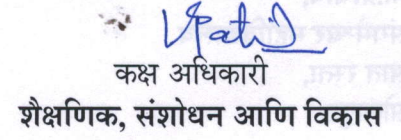 कक्ष अधिकारी
शैक्षणिक, संशोधन आणि विकास